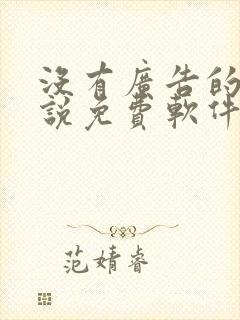 沒有廣告的
說免費軟件
范婧睿